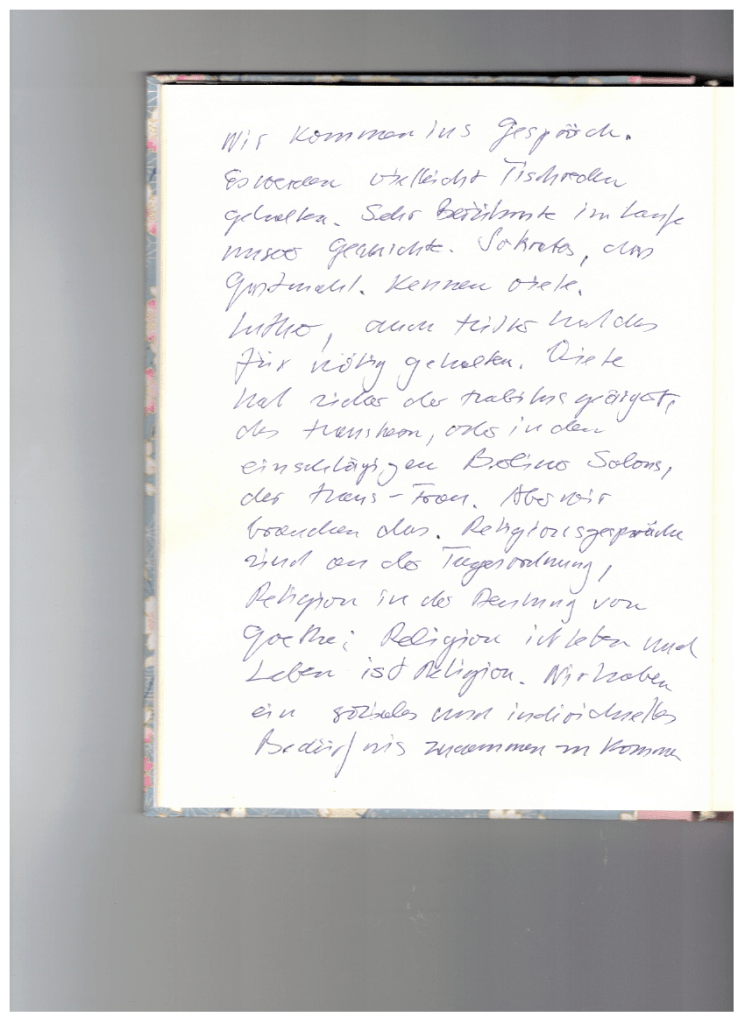 Wir kommen ins Gespräch.
Es werden vielleicht Tischreden
gehalten. Sehr Berühmte im Laufe
unser Geschichte. Sokrates, das
Gastmahl. Kennen viele.
Luther, auch hat das
für nötig gehalten. Viele
hat sicher der geärgert,
des, oder in den
einschlägigen Berliner Salons,
der trans-Frau. Aber wir
brauchen das. Religionsgespräche
sind an der Tagesordnung,
Religion in der Deutung von
Goethe: Religion ist Leben und
Leben ist Religion. Wir haben
ein soziales und individuelles
Bedürfnis zusammen zu kommen